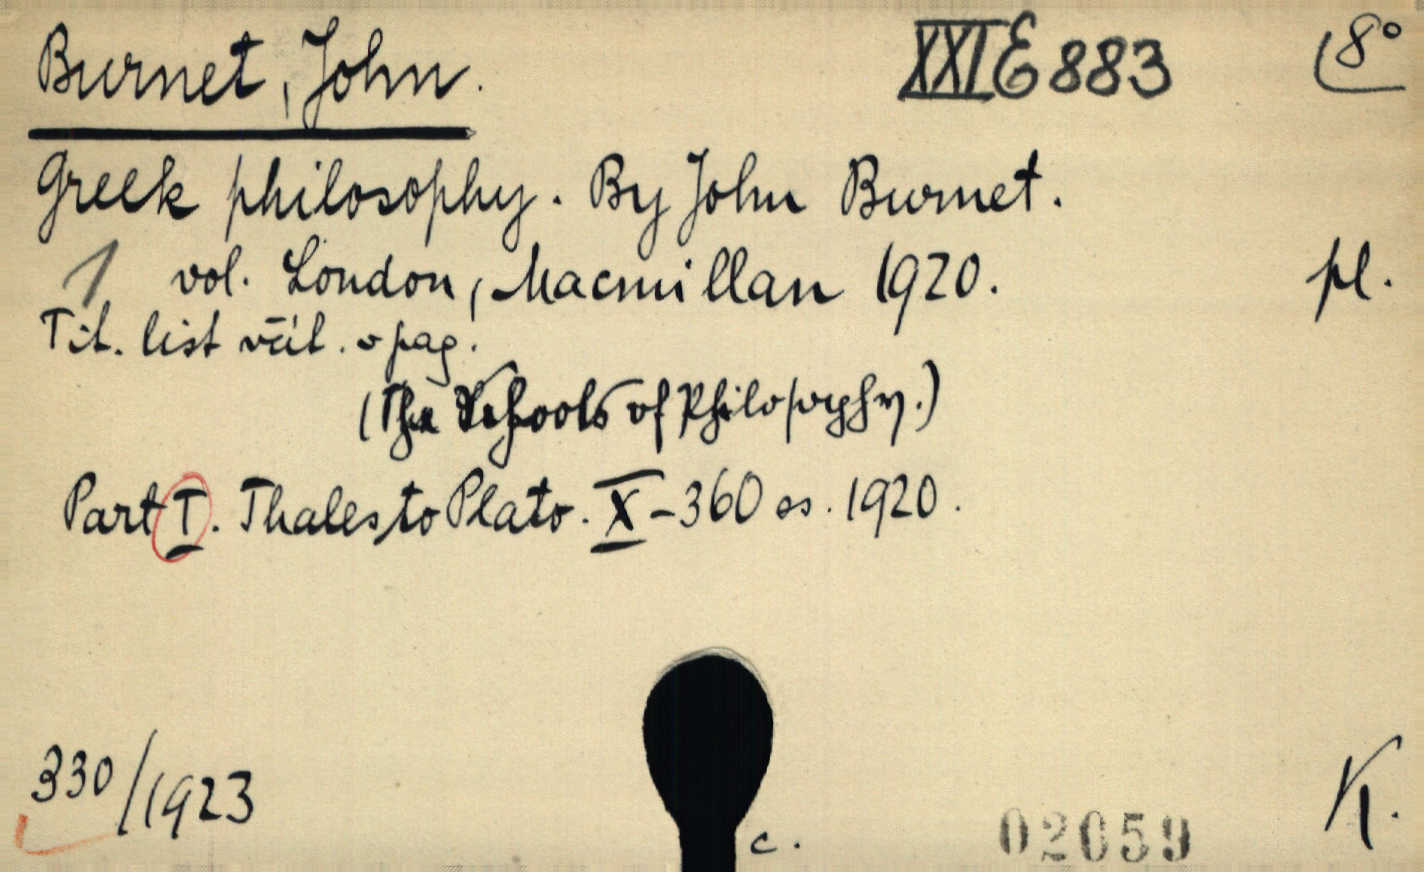 Burnet, John. XXI E 883 8°
Greek philosophy. By John Burnet.
1 vol. London, Macmillan 1920. pl.
Tit. list včít. v pag.
(The Schools of Philosophy.)
Part I. Thales to Plato. X-360 ss. 1920.
330/1923 K.
c. 02059